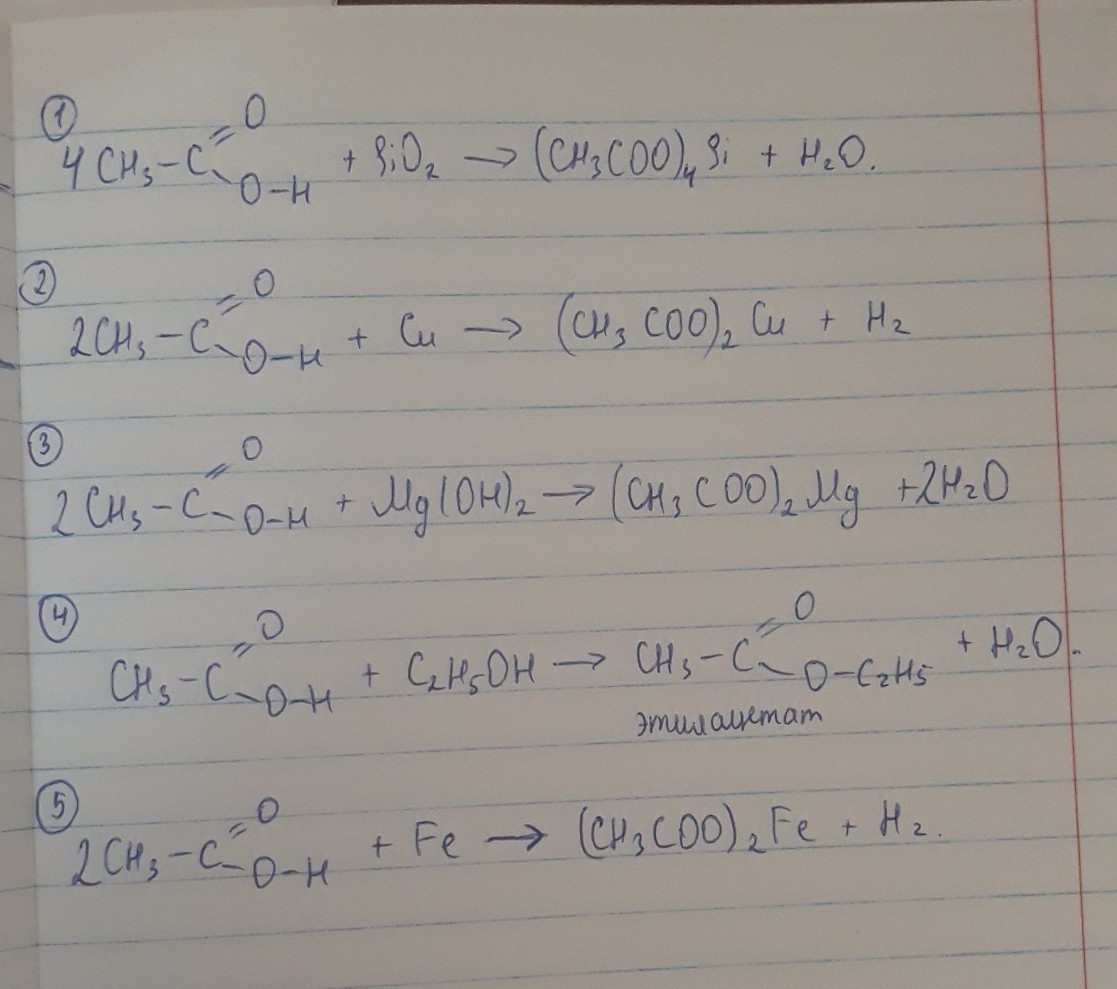 ①
4CH₃-C=O
O-H + SiO₂ → (CH₃COO)₄Si + H₂O.
②
2CH₃-C=O
O-H + Cu → (CH₃COO)₂Cu + H₂
③
2CH₃-C=O
O-H + Mg(OH)₂ → (CH₃COO)₂Mg +2H₂O
④
CH₃-C=O
O-H + C₂H₅OH → CH₃-C=O
O-C₂H₅ + H₂O.
этилацетат
⑤
2CH₃-C=O
O-H + Fe → (CH₃COO)₂Fe + H₂.